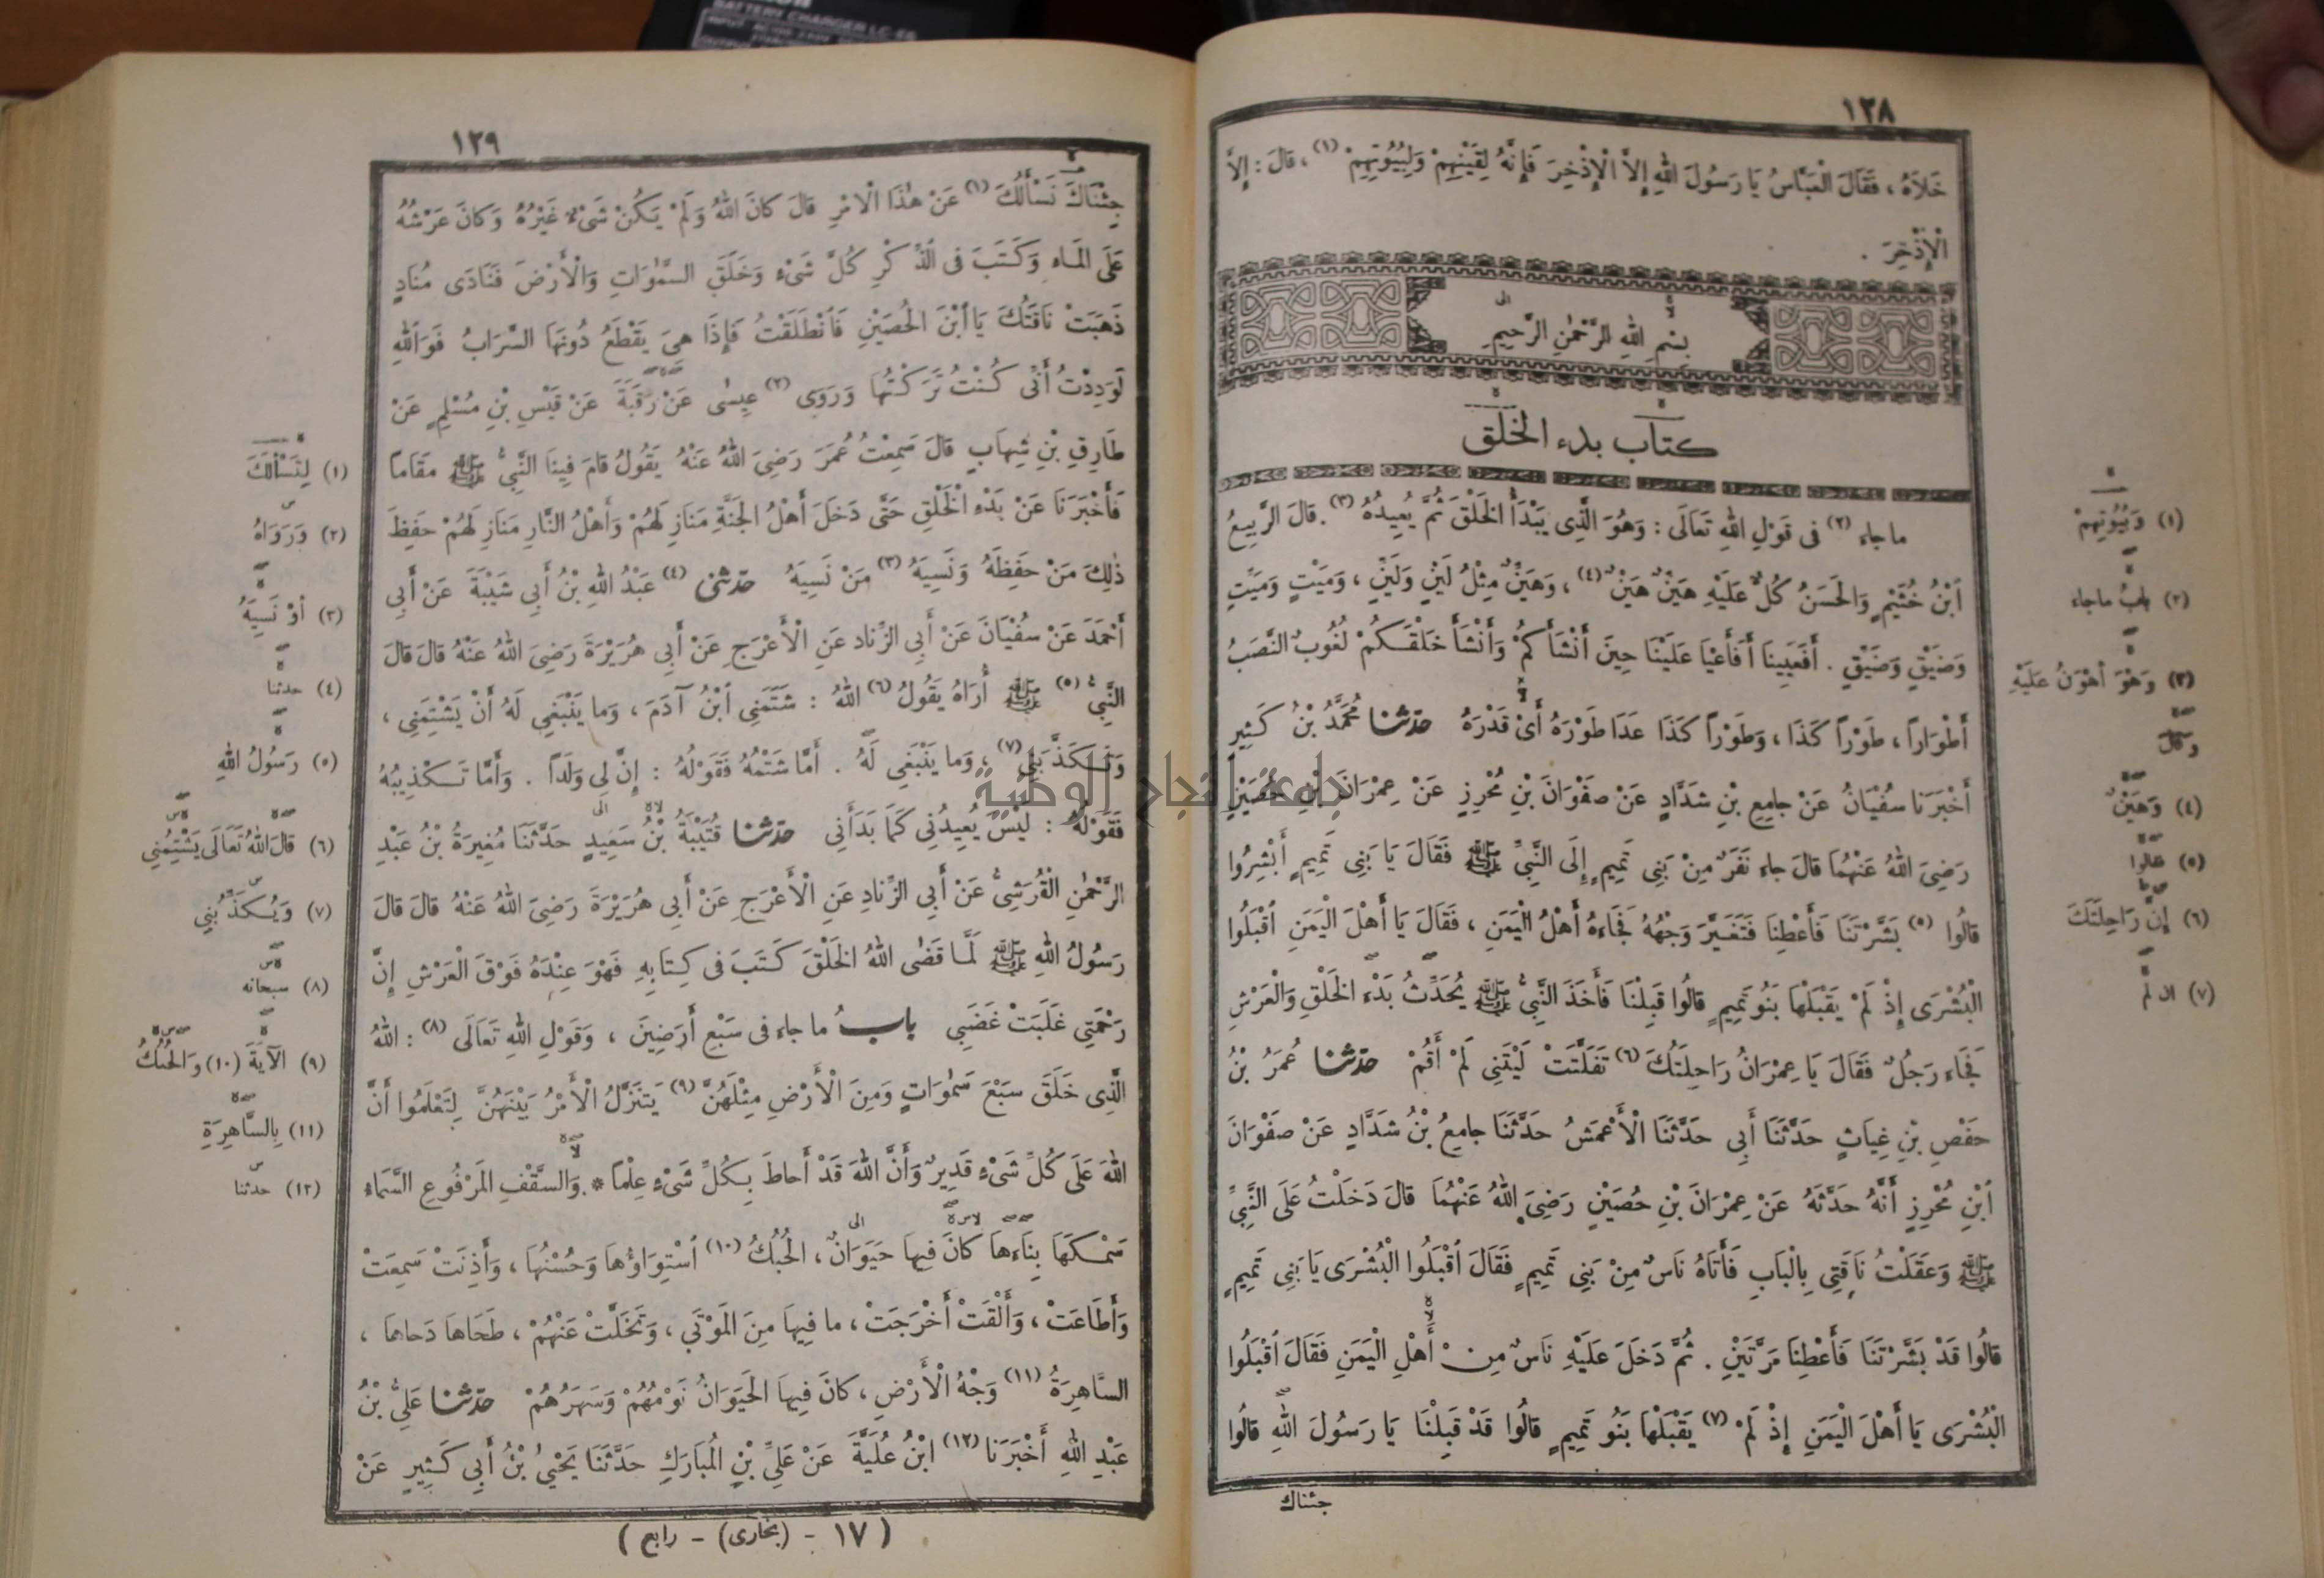 BATTERY CHARGER LC-E6
١٢٨
خَلَاهُ ، فَقَالَ الْعَبَّاسُ يَا رَسُولَ اللهِ إِلاَّ الْإِذْخِرَ فَإِنَّهُ لِقَيْنِهِمْ وَلِبُيُوتِهِمْ (١) ، قالَ : إِلاَّ
الْإِذْخِرَ .
بِسْمِ اللهِ الرَّحْمٰنِ الرَّحِيمِ
كتاب بدء الخلق
ما جاء (٢) فى قَوْلِ اللهِ تَعَالَى : وَهُوَ الَّذِى يَبْدَأُ الْخَلْقَ ثُمَّ يُعِيدُهُ (٣) . قالَ الرَّبِيعُ
ابْنُ خُثَيْمٍ وَالْحَسَنُ كُلٌّ عَلَيْهِ هَيِّنٌ هَيْنٌ (٤) ، وَهَيِّنٌ مِثْلُ لَيْنٍ وَلَيِّنٍ ، وَمَيْتٍ وَمَيِّتٍ
وَضَيْقٍ وَضَيِّقٍ . أَفَعَيِينَا أَفَأَعْيَا عَلَيْنَا حِينَ أَنْشَأَكُمْ وَأَنْشَأَ خَلْقَكُمْ لُغُوبٌ النَّصَبُ
أَطْوَاراً ، طَوْراً كَذَا ، وَطَوْراً كَذَا عَدَا طَوْرَهُ أَىْ قَدْرَهُ حَدَّثَنَا مُحَمَّدُ بْنُ كَثِيرٍ
أَخْبَرَنَا سُفْيَانُ عَنْ جامِعِ بْنِ شَدَّادٍ عَنْ صَفْوَانَ بْنِ مُحْرِزٍ عَنْ عِمْرَانَ بْنِ حُصَيْنٍ
رَضِىَ اللهُ عَنْهُمَا قالَ جاء نَفَرٌ مِنْ بَنِى تَمِيمٍ إِلَى النَّبِىِّ ﷺ فَقَالَ يَا بَنِى تَمِيمٍ أَبْشِرُوا
قالُوا (٥) بَشَّرْتَنَا فَأَعْطِنَا فَتَغَيَّرَ وَجْهُهُ فَجَاءَهُ أَهْلُ الْيَمَنِ ، فَقَالَ يَا أَهْلَ الْيَمَنِ اقْبَلُوا
الْبُشْرَى إِذْ لَمْ يَقْبَلْهَا بَنُو تَمِيمٍ قالُوا قَبِلْنَا فَأَخَذَ النَّبِىُّ ﷺ يُحَدِّثُ بَدْءَ الْخَلْقِ وَالْعَرْشِ
فَجَاء رَجُلٌ فَقَالَ يَا عِمْرَانُ رَاحِلَتُكَ (٦) تَفَلَّتَتْ لَيْتَنِى لَمْ أَقُمْ حَدَّثَنَا عُمَرُ بْنُ
حَفْصِ بْنِ غِيَاثٍ حَدَّثَنَا أَبِى حَدَّثَنَا الْأَعْمَشُ حَدَّثَنَا جامِعُ بْنُ شَدَّادٍ عَنْ صَفْوَانَ
ابْنِ مُحْرِزٍ أَنَّهُ حَدَّثَهُ عَنْ عِمْرَانَ بْنِ حُصَيْنٍ رَضِىَ اللهُ عَنْهُمَا قالَ دَخَلْتُ عَلَى النَّبِىِّ
ﷺ وَعَقَلْتُ نَاقَتِى بِالْبَابِ فَأَتَاهُ نَاسٌ مِنْ بَنِى تَمِيمٍ فَقَالَ اقْبَلُوا الْبُشْرَى يَا بَنِى تَمِيمٍ
قالُوا قَدْ بَشَّرْتَنَا فَأَعْطِنَا مَرَّتَيْنِ . ثُمَّ دَخَلَ عَلَيْهِ نَاسٌ مِنْ أَهْلِ الْيَمَنِ فَقَالَ اقْبَلُوا
الْبُشْرَى يَا أَهْلَ الْيَمَنِ إِذْ لَمْ (٧) يَقْبَلْهَا بَنُو تَمِيمٍ قالُوا قَدْ قَبِلْنَا يَا رَسُولَ اللهِ قالُوا
جئناك
(١) وَبُيُوتِهِمْ
(٢) بابُ ماجاء
(٣) وَهْوَ أَهْوَنُ عَلَيْهِ
وكل
(٤) وَهَيْنٌ
(٥) فقالوا
(٦) إِنَّ رَاحِلَتَكَ
(٧) ان لم
١٢٩
جِئْنَاكَ نَسْأَلُكَ (١) عَنْ هٰذَا الْامْرِ قالَ كانَ اللهُ وَلَمْ يَكُنْ شَىْءٌ غَيْرُهُ وَكانَ عَرْشُهُ
عَلَى المَاءِ وَكَتَبَ فى الذِّكْرِ كُلَّ شَىْءٍ وَخَلَقَ السَّمٰوَاتِ وَالْأَرْضَ فَنَادَى مُنَادٍ
ذَهَبَتْ نَاقَتُكَ يَا ابْنَ الْحُصَيْنِ فَانْطَلَقْتُ فَإِذَا هِىَ يَقْطَعُ دُونَهَا السَّرَابُ فَوَاللهِ
لَوَدِدْتُ أَنِّى كُنْتُ تَرَكْتُهَا وَرَوَى (٢) عِيسٰى عَنْ رَقَبَةَ عَنْ قَيْسِ بْنِ مُسْلِمٍ عَنْ
طَارِقِ بْنِ شِهابٍ قالَ سَمِعْتُ عُمَرَ رَضِىَ اللهُ عَنْهُ يَقُولُ قامَ فِينَا النَّبِىُّ ﷺ مَقَاماً
فَأَخْبَرَنَا عَنْ بَدْءِ الْخَلْقِ حَتَّى دَخَلَ أَهْلُ الْجَنَّةِ مَنَازِلَهُمْ وَأَهْلُ النَّارِ مَنَازِلَهُمْ حَفِظَ
ذٰلِكَ مَنْ حَفِظَهُ وَنَسِيَهُ (٣) مَنْ نَسِيَهُ حَدَّثَنِى (٤) عَبْدُ اللهِ بْنُ أَبِى شَيْبَةَ عَنْ أَبِى
أَحْمَدَ عَنْ سُفْيَانَ عَنْ أَبِى الزِّنَادِ عَنِ الْأَعْرَجِ عَنْ أَبِى هُرَيْرَةَ رَضِىَ اللهُ عَنْهُ قالَ قالَ
النَّبِىُّ (٥) ﷺ أُرَاهُ يَقُولُ (٦) اللهُ : شَتَمَنِى ابْنُ آدَمَ ، وَما يَنْبَغِى لَهُ أَنْ يَشْتِمَنِى ،
وَتَكَذَّبَنِى (٧) ، وَما يَنْبَغِى لَهُ . أَمَّا شَتْمُهُ فَقَوْلُهُ : إِنَّ لِى وَلَداً . وَأَمَّا تَكْذِيبُهُ
فَقَوْلُهُ : لَيْسَ يُعِيدُنِى كَمَا بَدَأَنِى حَدَّثَنَا قُتَيْبَةُ بْنُ سَعِيدٍ حَدَّثَنَا مُغِيرَةُ بْنُ عَبْدِ
الرَّحْمٰنِ الْقُرَشِىُّ عَنْ أَبِى الزِّنَادِ عَنِ الْأَعْرَجِ عَنْ أَبِى هُرَيْرَةَ رَضِىَ اللهُ عَنْهُ قالَ قالَ
رَسُولُ اللهِ ﷺ لَمَّا قَضٰى اللهُ الْخَلْقَ كَتَبَ فى كِتَابِهِ فَهْوَ عِنْدَهُ فَوْقَ الْعَرْشِ إِنَّ
رَحْمَتِى غَلَبَتْ غَضَبِى بابُ ما جاء فى سَبْعِ أَرَضِينَ ، وَقَوْلِ اللهِ تَعَالَى (٨) : اللهُ
الَّذِى خَلَقَ سَبْعَ سَمٰوَاتٍ وَمِنَ الْأَرْضِ مِثْلَهُنَّ (٩) يَتَنَزَّلُ الْأَمْرُ بَيْنَهُنَّ لِتَعْلَمُوا أَنَّ
اللهَ عَلَى كُلِّ شَىْءٍ قَدِيرٌ وَأَنَّ اللهَ قَدْ أَحاطَ بِكُلِّ شَىْءٍ عِلْماً * وَالسَّقْفِ المَرْفُوعِ السَّمَاءِ
سَمْكَهَا بِنَاءَهَا كانَ فِيهَا حَيَوَانٌ ، الْحُبُكُ (١٠) اسْتِوَاؤُهَا وَحُسْنُهَا ، وَأَذِنَتْ سَمِعَتْ
وَأَطَاعَتْ ، وَأَلْقَتْ أَخْرَجَتْ ، ما فِيهَا مِنَ المَوْتَى ، وَتَخَلَّتْ عَنْهُمْ ، طَحَاهَا دَحاها ،
السَّاهِرَةُ (١١) وَجْهُ الْأَرْضِ ، كانَ فِيهَا الْحَيَوَانُ نَوْمُهُمْ وَسَهَرُهُمْ حَدَّثَنَا عَلِىُّ بْنُ
عَبْدِ اللهِ أَخْبَرَنَا (١٢) ابْنُ عُلَيَّةَ عَنْ عَلِىِّ بْنِ المُبَارَكِ حَدَّثَنَا يَحْيىٰ بْنُ أَبِى كَثِيرٍ عَنْ
( ١٧ - (بخارى) - رابع )
(١) لِنَسْأَلَكَ
(٢) وَرَوَاهُ
(٣) أَوْ نَسِيَهُ
(٤) حدثنا
(٥) رَسُولُ اللهِ
(٦) قالَ اللهُ تَعَالَى يَشْتِمُنِى
(٧) وَيُكَذِّبُنِى
(٨) سبحانه
(٩) الآيَةَ (١٠) وَالْحُبُكُ
(١١) بِالسَّاهِرَةِ
(١٢) حدثنا
جامعة النجاح الوطنية